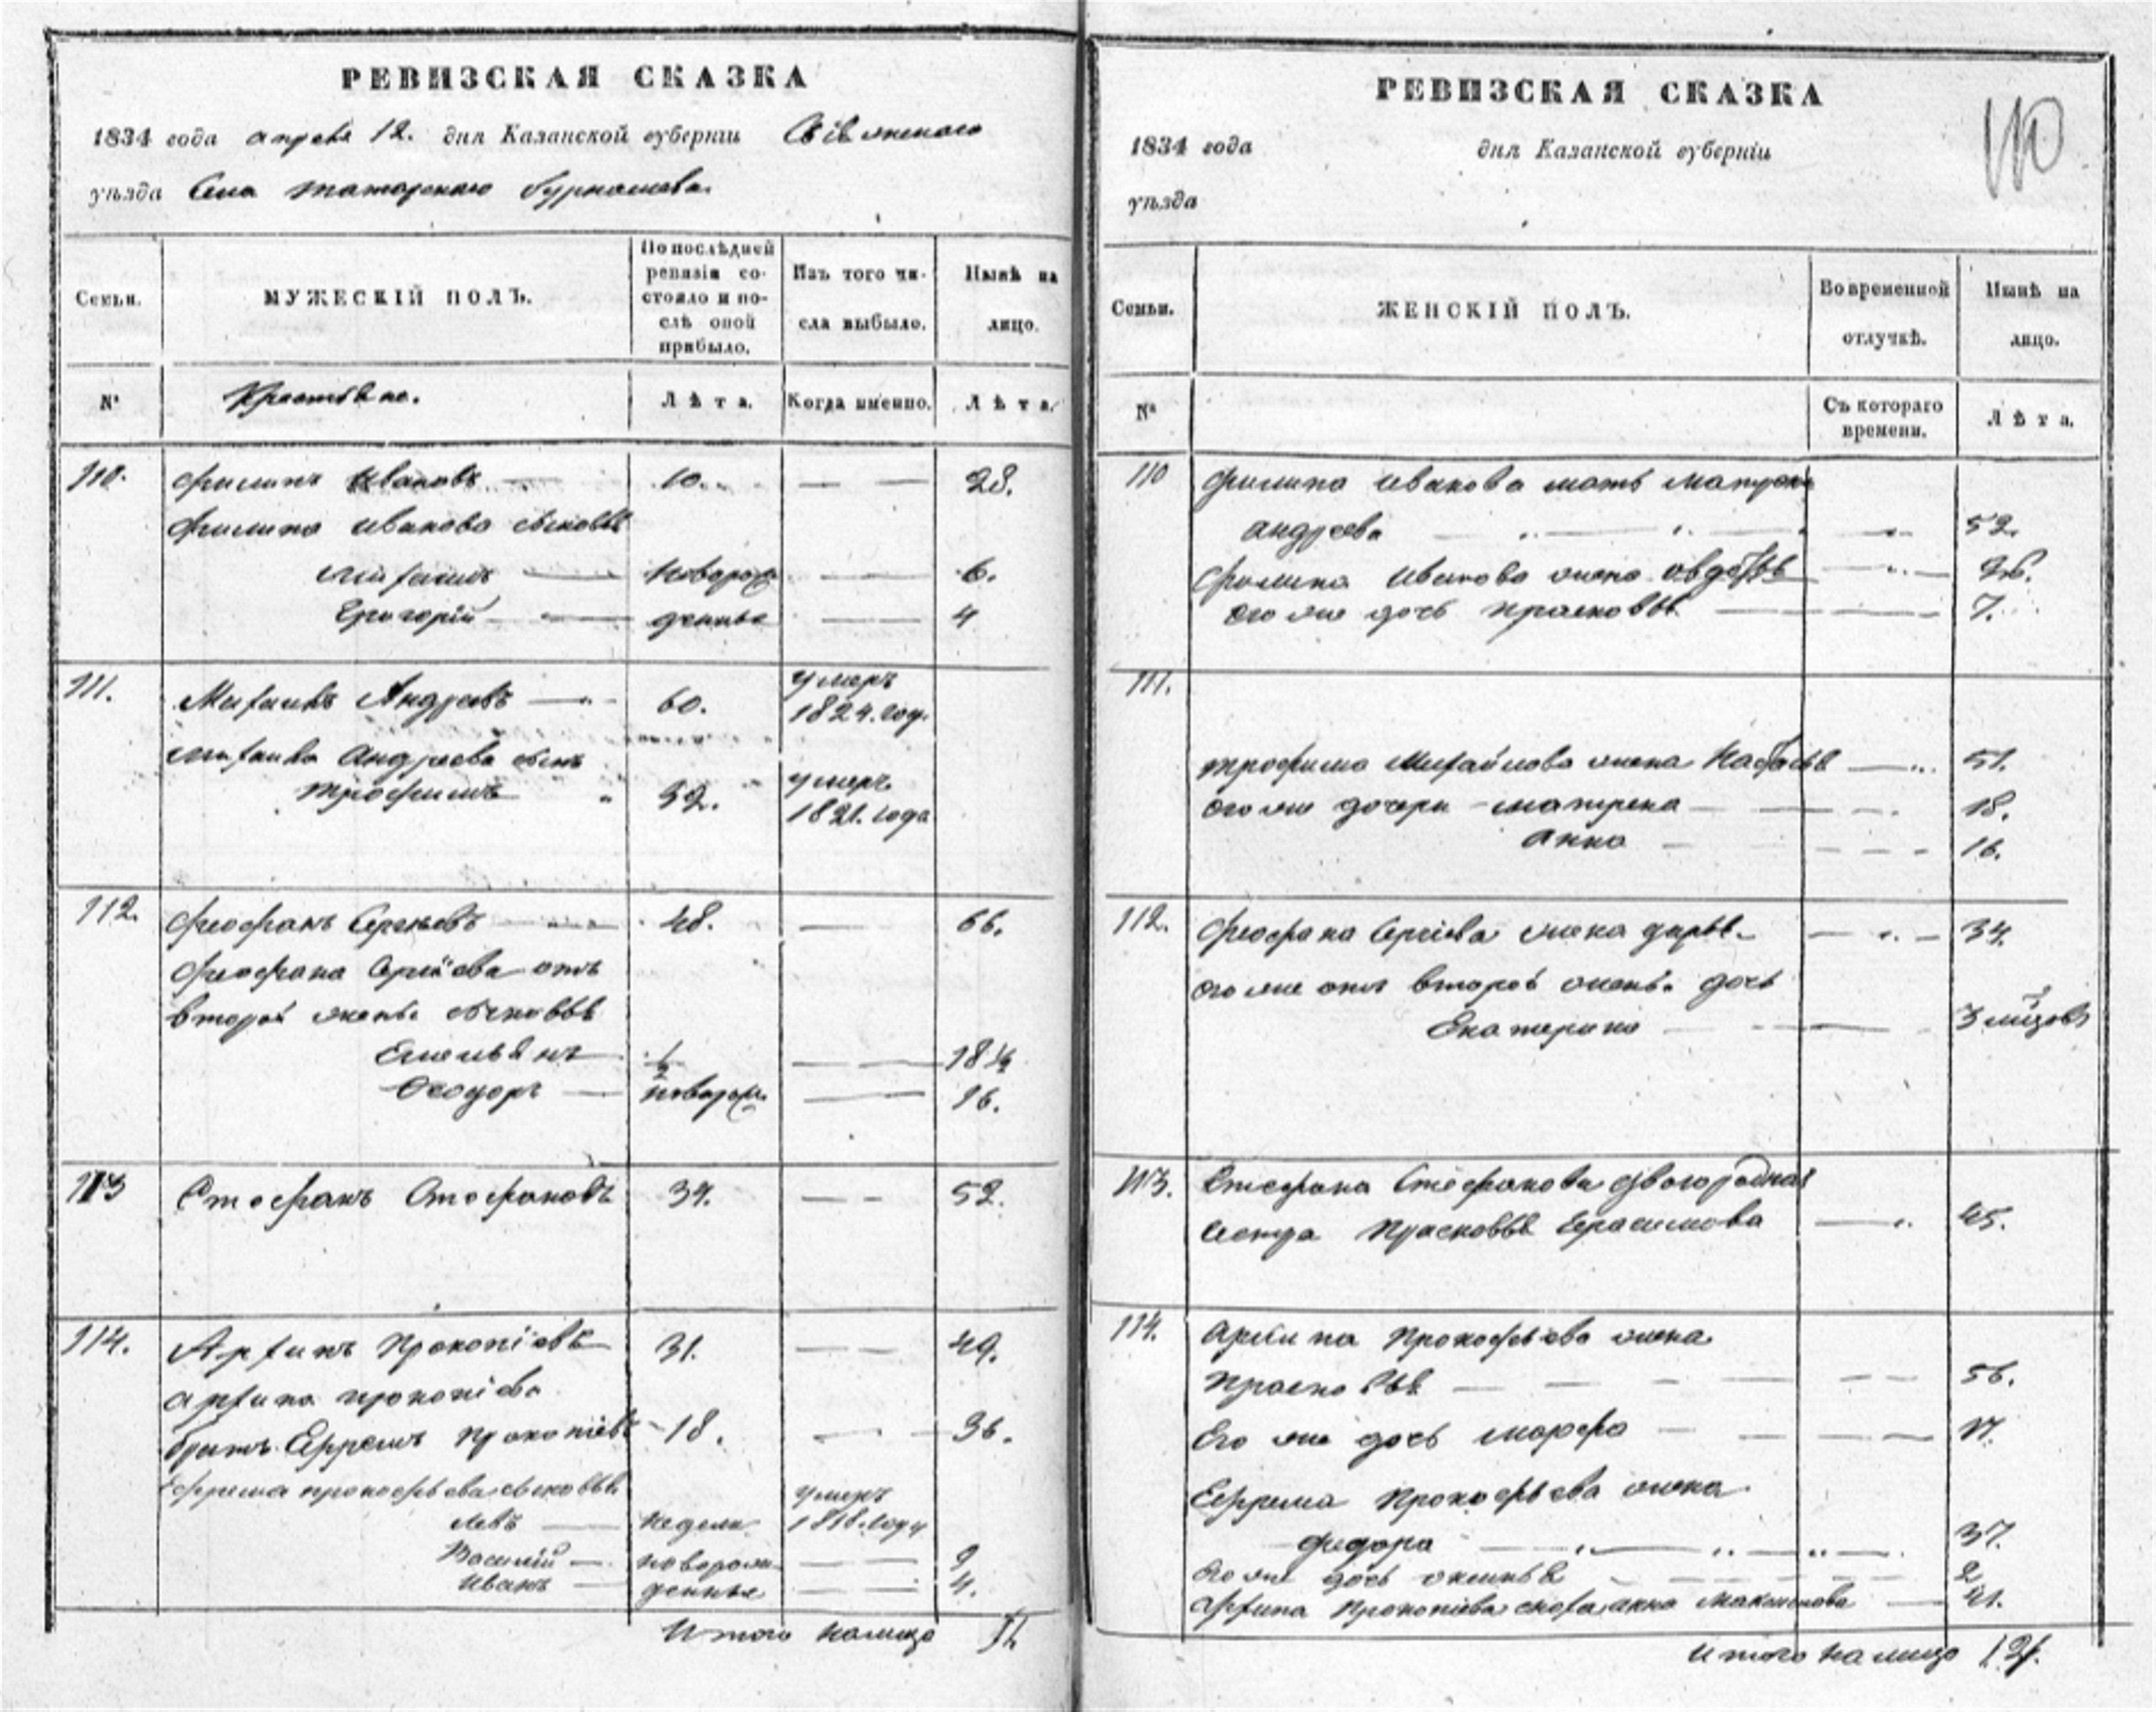 РЕВИЗСКАЯ СКАЗКА
1834 года апреля 12. дня Казанской губерніи Свіяжскаго
уѣзда Села татарскаго бурнашева
Семьи.
МУЖЕСКІЙ ПОЛЪ.
По послѣдней
ревизіи со-
стояло и по-
слѣ оной
прибыло.
Изъ того чи-
сла выбыло.
Нынѣ на
лицо.
№
Крестьяне.
Лѣта.
Когда именно.
Лѣта.
110. Филипъ Ивановъ — 10. — — 28.
Филипа Иванова сыновья
Михаилъ — новорож — 6.
Григорій — денные — 4
111. Михаилъ Андреевъ — 60. умеръ
1824. год.
Михаила Андреева сынъ
Трофимъ 32. умеръ
1821. года
112. Феофанъ Сергѣевъ — 48. — 66.
Феофана Сергіева отъ
второй жены сыновья
Емельянъ 1/2 — 18 1/2
Феодоръ — новорож. — 16.
113 Стефанъ Стефановъ 34. — — 52.
114. Архипъ Прокопіевъ 31. — — 49.
Архипа прокопіева
братъ Ефремъ Прокопіевъ 18. — 36.
Ефрема прокофьева сыновья
Левъ — недели умеръ
1816. году
Василій — новорож — — 9
Иванъ — денные — — 4.
Итого налицо 11
РЕВИЗСКАЯ СКАЗКА
1834 года дня Казанской губерніи
уѣзда
110
Семьи.
ЖЕНСКІЙ ПОЛЪ.
Во временной
отлучкѣ.
Нынѣ на
лицо.
№
Съ котораго
времени.
Лѣта.
110 Филипа Иванова мать Матрена
андреева — — 52.
Филипа Иванова жена авдотья — 26.
его же дочь Прасковья — 7.
111.
Трофима Михайлова жена Настасья — 51.
его же дочери Матрена — 18.
Анна — 16.
112. Феофана Сергіева жена дарья — 34.
его же отъ второй жены дочь
Екатерина — 3 месяцовъ
113. Стефана Стефанова двоюродная
сестра Прасковья Герасимова — 45.
114. Архипа Прокофьева жена
Прасковья — 56.
Его же дочь марфа — 17.
Ефрема Прокофьева жена
федора — 37.
его же дочь аксинья — 2
архипа Прокопіева сноха анна максимова — 41.
Итого налицо 12.